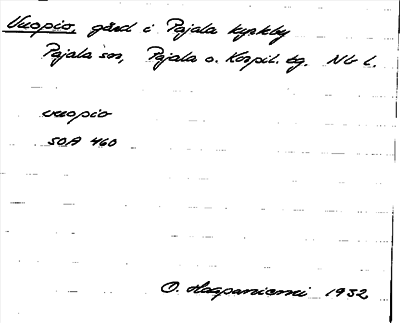 Vuopio, gård i Pajala kyrkby
Pajala sn, Pajala o. Korpil. tg. Nb l.
vuopio
SOA 460
O. Haapaniemi 1932